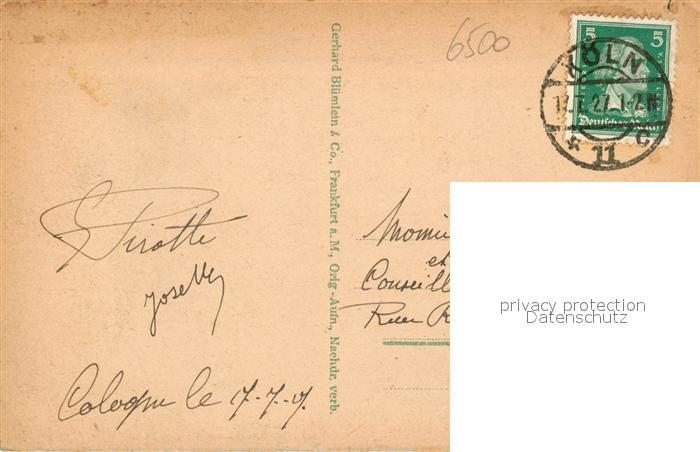 6500
5 5
KÖLN
17.7.27. 1-2 N
Deutsches Reich
* 11 C
Gerhard Blümlein & Co., Frankfurt a. M., Orig.-Aufn., Nachdr. verb.
Pirotte
Cologne le 17-7-27
et
Conseill
Rue R
privacy protection
Datenschutz